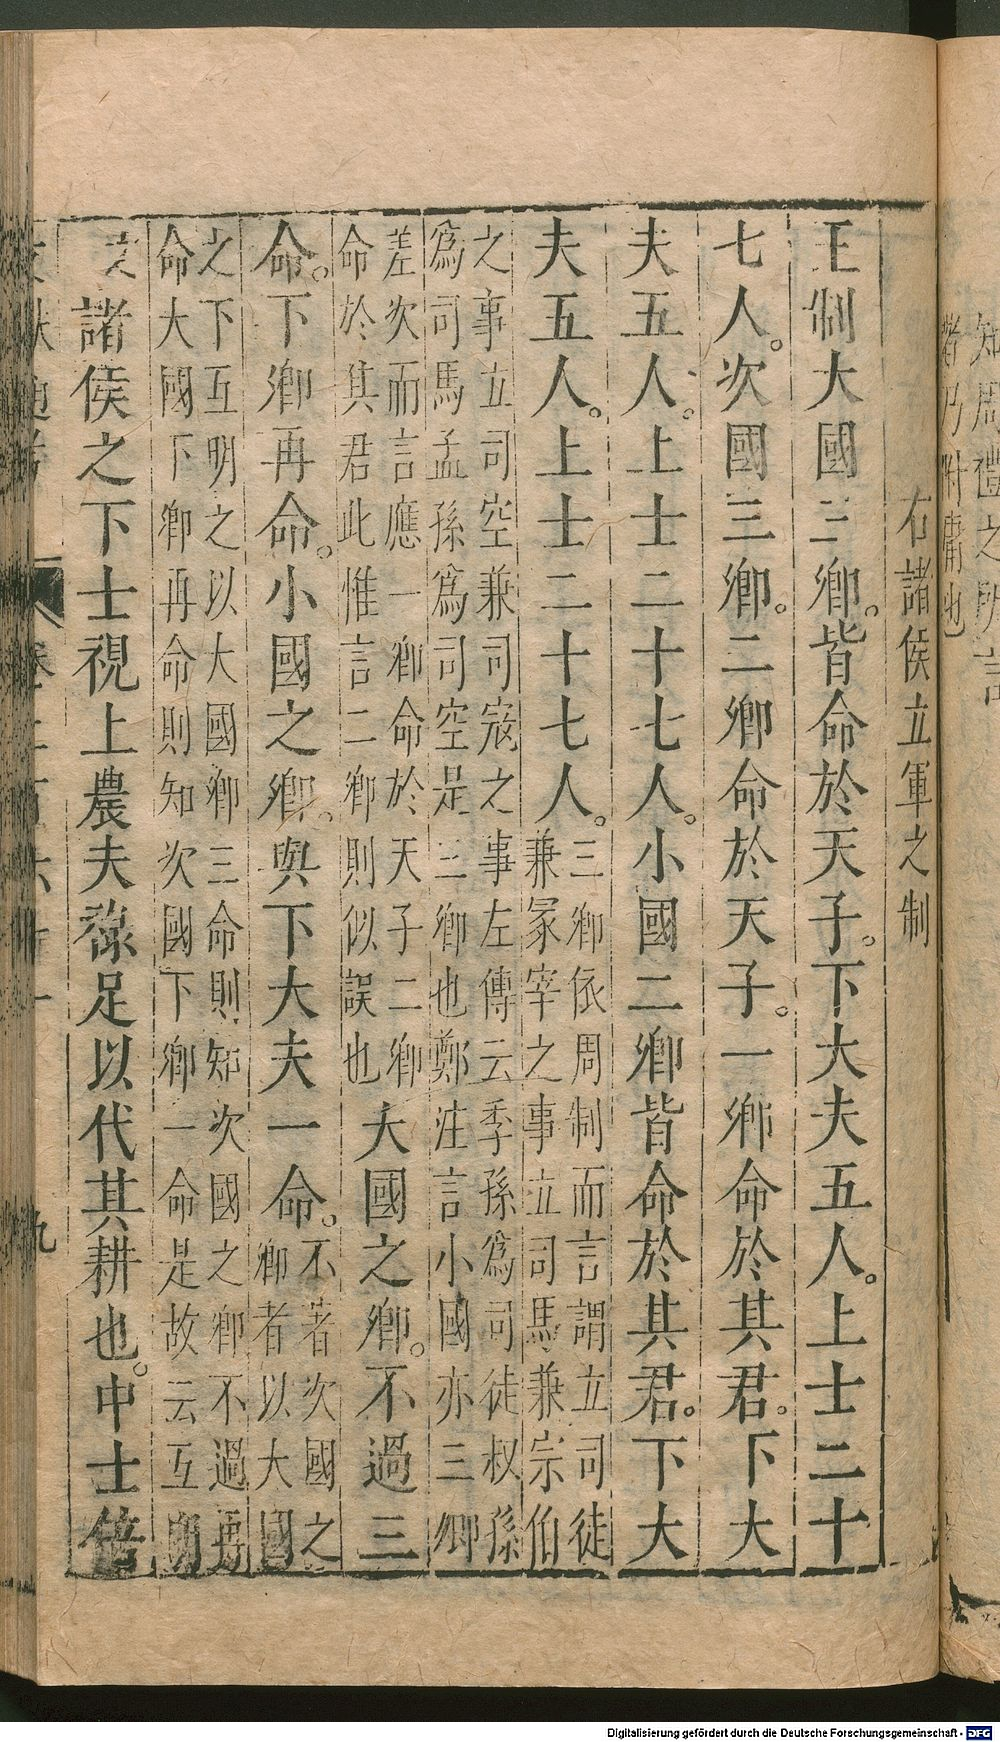 知周禮之所言
者乃附庸也
右諸侯立軍之制
王制大國三卿。皆命於天子。下大夫五人。上士二十
七人。次國三卿。二卿命於天子。一卿命於其君。下大
夫五人。上士二十七人。小國二卿皆命於其君。下大
夫五人。上士二十七人。
三卿依周制而言謂立司徒
兼冢宰之事立司馬兼宗伯
之事立司空兼司寇之事左傳云季孫爲司徒叔孫
爲司馬孟孫爲司空是三卿也鄭注言小國亦三卿
差次而言應一卿命於天子二卿
命於其君此惟言二卿則似誤也
大國之卿。不過三
命。下卿再命。小國之卿。與下大夫一命。
不著次國之
卿者以大國
之下互明之以大國卿三命則知次國之卿不過再
命大國下卿再命則知次國下卿一命是故云互明
文
諸侯之下士視上農夫祿足以代其耕也。中士倍
九
Digitalisierung gefördert durch die Deutsche Forschungsgemeinschaft - DFG